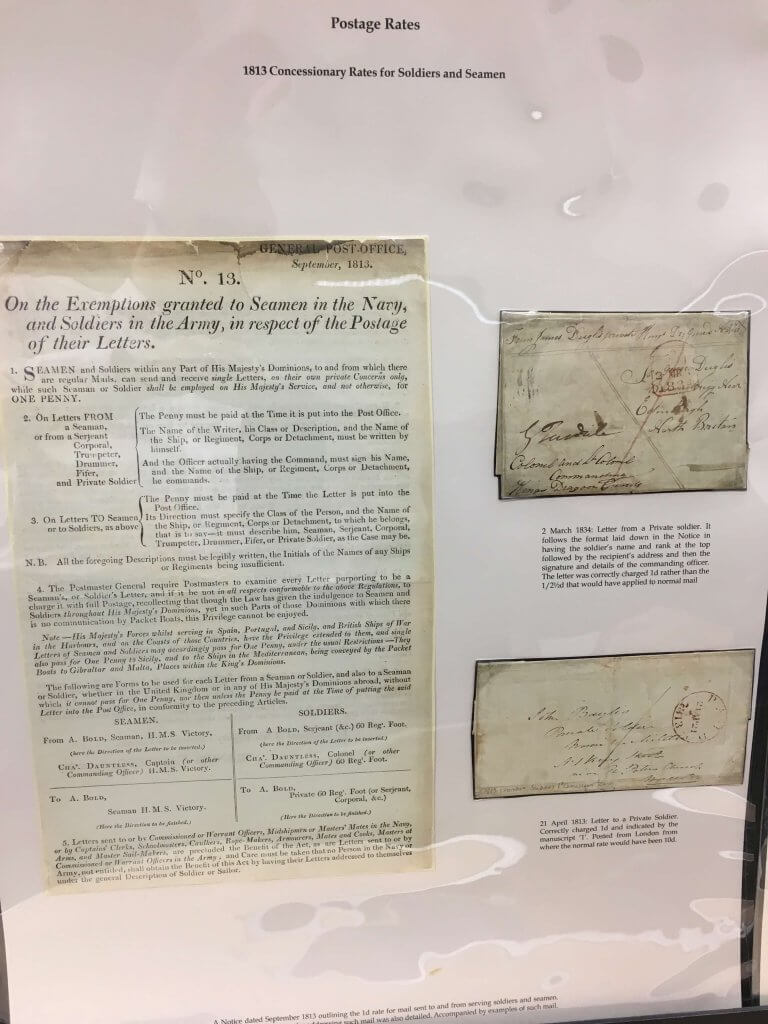 Postage Rates
1813 Concessionary Rates for Soldiers and Seamen
GENERAL POST-OFFICE,
September, 1813.
No. 13.
On the Exemptions granted to Seamen in the Navy,
and Soldiers in the Army, in respect of the Postage
of their Letters.
1. SEAMEN and Soldiers within any Part of His Majesty's Dominions, to and from which there
are regular Mails, can send and receive single Letters, on their own private Concerns only,
while such Seaman or Soldier shall be employed on His Majesty's Service, and not otherwise, for
ONE PENNY.
2. On Letters FROM
a Seaman,
or from a Serjeant
Corporal,
Trumpeter,
Drummer,
Fifer,
and Private Soldier
The Penny must be paid at the Time it is put into the Post Office.
The Name of the Writer, his Class or Description, and the Name of
the Ship, or Regiment, Corps or Detachment, must be written by
himself.
And the Officer actually having the Command, must sign his Name,
and the Name of the Ship, or Regiment, Corps or Detachment,
he commands.
3. On Letters TO Seamen
or to Soldiers, as above
The Penny must be paid at the Time the Letter is put into the
Post Office.
Its Direction must specify the Class of the Person, and the Name of
the Ship, or Regiment, Corps or Detachment, to which he belongs,
that is to say—it must describe him, Seaman, Serjeant, Corporal,
Trumpeter, Drummer, Fifer, or Private Soldier, as the Case may be.
N. B. All the foregoing Descriptions must be legibly written, the Initials of the Names of any Ships
or Regiments being insufficient.
4. The Postmaster General require Postmasters to examine every Letter purporting to be a
Seaman's, or Soldier's Letter, and if it be not in all respects conformable to the above Regulations, to
charge it with full Postage, recollecting that though the Law has given the indulgence to Seamen and
Soldiers throughout His Majesty's Dominions, yet in such Parts of those Dominions with which there
is no communication by Packet Boats, this Privilege cannot be enjoyed.
Note—His Majesty's Forces whilst serving in Spain, Portugal, and Sicily, and British Ships of War
in the Harbours, and on the Coasts of those Countries, have the Privilege extended to them, and single
Letters of Seamen and Soldiers may accordingly pass for One Penny, under the usual Restrictions—They
also pass for One Penny to Sicily, and to the Ships in the Mediterranean, being conveyed by the Packet
Boats to Gibraltar and Malta, Places within the King's Dominions.
The following are Forms to be used for each Letter from a Seaman or Soldier, and also to a Seaman
or Soldier, whether in the United Kingdom or in any of His Majesty's Dominions abroad, without
which it cannot pass for One Penny, nor then unless the Penny be paid at the Time of putting the said
Letter into the Post Office, in conformity to the preceding Articles.
SEAMEN.
From A. BOLD, Seaman, H.M.S. Victory.
(here the Direction of the Letter to be inserted.)
CHAs. DAUNTLESS, Captain (or other
Commanding Officer) H.M.S. Victory.
To A. BOLD,
Seaman H.M.S. Victory.
(Here the Direction to be finished.)
SOLDIERS.
From A BOLD, Serjeant (&c.) 60 Reg. Foot.
(here the Direction of the Letter to be inserted.)
CHAs. DAUNTLESS, Colonel (or other
Commanding Officer) 60 Reg. Foot.
To A. BOLD,
Private 60 Reg. Foot (or Serjeant,
Corporal, &c.)
(Here the Direction to be finished.)
5. Letters sent to or by Commissioned or Warrant Officers, Midshipmen or Masters' Mates in the Navy,
or by Captains' Clerks, Schoolmasters, Caulkers, Rope-Makers, Armourers, Mates and Cooks, Masters at
Arms, and Master Sail-Makers, are precluded the Benefit of the Act, as are Letters sent to or by
Commissioned or Warrant Officers in the Army, and Care must be taken that no Person in the Navy or
Army, not entitled, shall obtain the Benefit of this Act by having their Letters addressed to themselves
under the general Description of Soldier or Sailor.
From James
private Kings
Edinburgh
North Britain
Colonel and Lt Colonel
Commanding
Kings Dragoon Guards
2 March 1834: Letter from a Private soldier. It
follows the format laid down in the Notice in
having the soldier's name and rank at the top
followed by the recipient's address and then the
signature and details of the commanding officer.
The letter was correctly charged 1d rather than the
1/2½d that would have applied to normal mail
John
Private
21 April 1813: Letter to a Private Soldier.
Correctly charged 1d and indicated by the
manuscript '1'. Posted from London from
where the normal rate would have been 10d.
A Notice dated September 1813 outlining the 1d rate for mail sent to and from serving soldiers and seamen.
such mail was also detailed. Accompanied by examples of such mail.